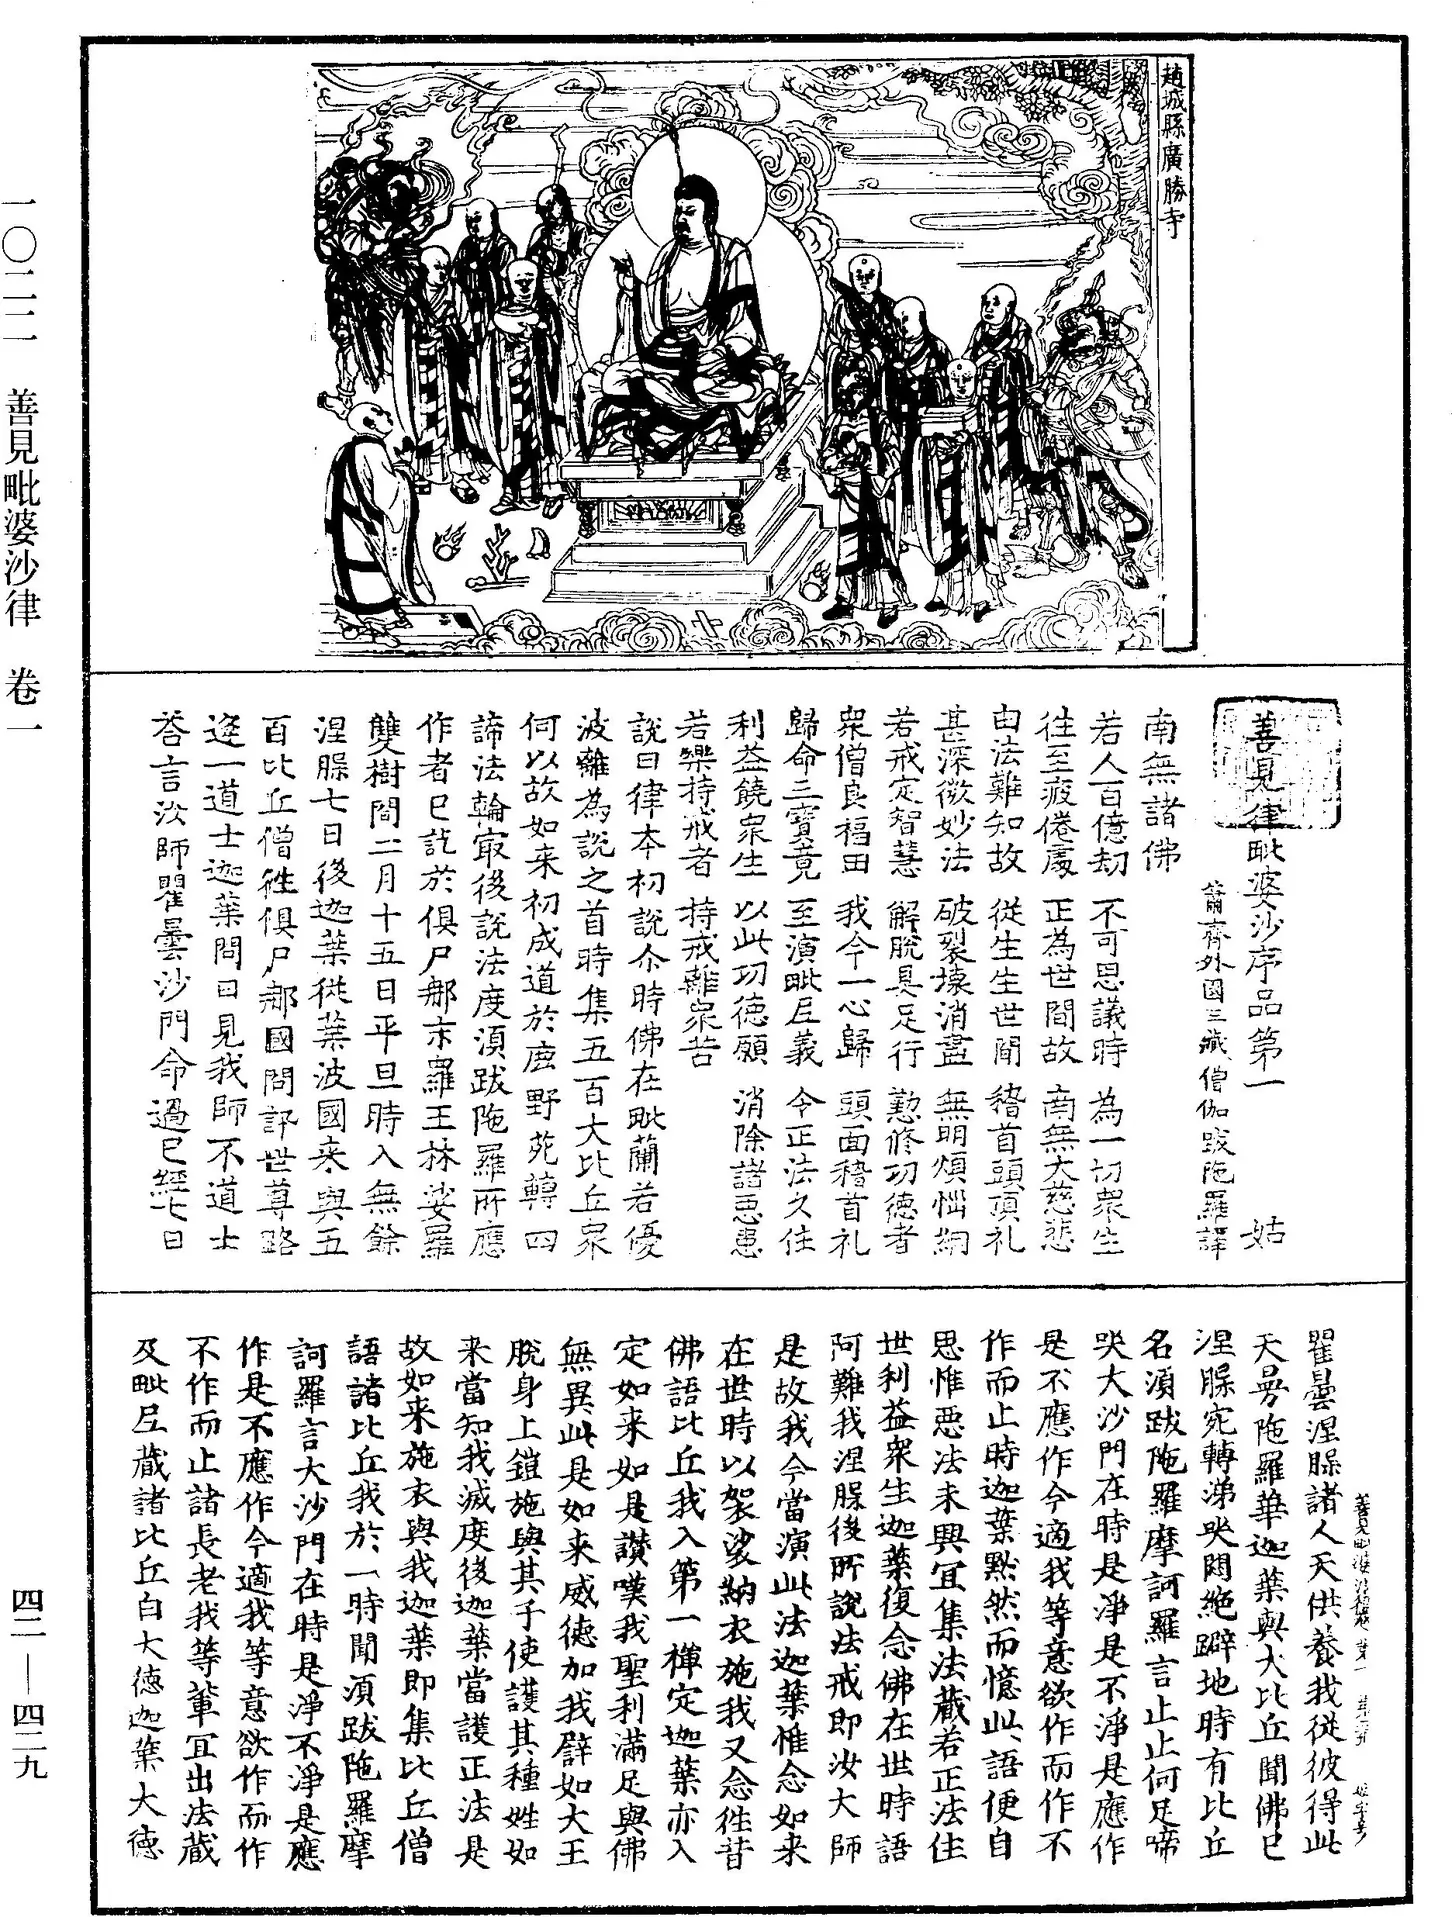 趙城縣廣勝寺
善見律毗婆沙序品第一 姑
蕭齊外國三藏僧伽跋陁羅譯
南無諸佛
若人百億劫 不可思議時 為一切衆生
往至疲倦處 正為世間故 南無大慈悲
由法難知故 從生生世間 稽首頭頂礼
甚深微妙法 破裂壞消盡 無明煩惱網
若戒定智慧 解脫具足行 懃修功德者
衆僧良福田 我今一心歸 頭面稽首礼
歸命三寶竟 至演毗尼義 令正法久住
利益饒衆生 以此功德願 消除諸惡患
若樂持戒者 持戒離衆苦
說曰律本初說尒時佛在毗蘭若優
波離為說之首時集五百大比丘衆
何以故如来初成道於鹿野苑轉四
諦法輪㝡後說法度湏跋陁羅所應
作者已訖於俱尸那末羅王林娑羅
雙樹間二月十五日平旦時入無餘
涅槃七日後迦葉從葉波國来與五
百比丘僧徃俱尸那國問訊世尊路
逢一道士迦葉問曰見我師不道士
荅言汝師瞿曇沙門命過已經七日
瞿曇涅槃諸人天供養我從彼得此
天曼陁羅華迦葉與大比丘聞佛已
涅槃宛轉涕哭悶絶躃地時有比丘
名湏跋陁羅摩訶羅言止止何足啼
哭大沙門在時是淨是不淨是應作
是不應作今適我等意欲作而作不
作而止時迦葉黙然而憶此語便自
思惟惡法未興冝集法藏若正法住
世利益衆生迦葉復念佛在世時語
阿難我涅槃後所說法戒即汝大師
是故我今當演此法迦葉惟念如来
在世時以袈裟納衣施我又念徃昔
佛語比丘我入第一禪定迦葉亦入
定如来如是讚嘆我聖利滿足與佛
無異此是如来威德加我譬如大王
脫身上鎧施與其子使護其種姓如
来當知我滅度後迦葉當護正法是
故如来施衣與我迦葉即集比丘僧
語諸比丘我於一時聞湏跋陁羅摩
訶羅言大沙門在時是淨不淨是應
作是不應作今適我等意欲作而作
不作而止諸長老我等輩冝出法藏
及毗尼藏諸比丘白大德迦葉大德
一〇二二 善見毗婆沙律 卷一
四二—四二九